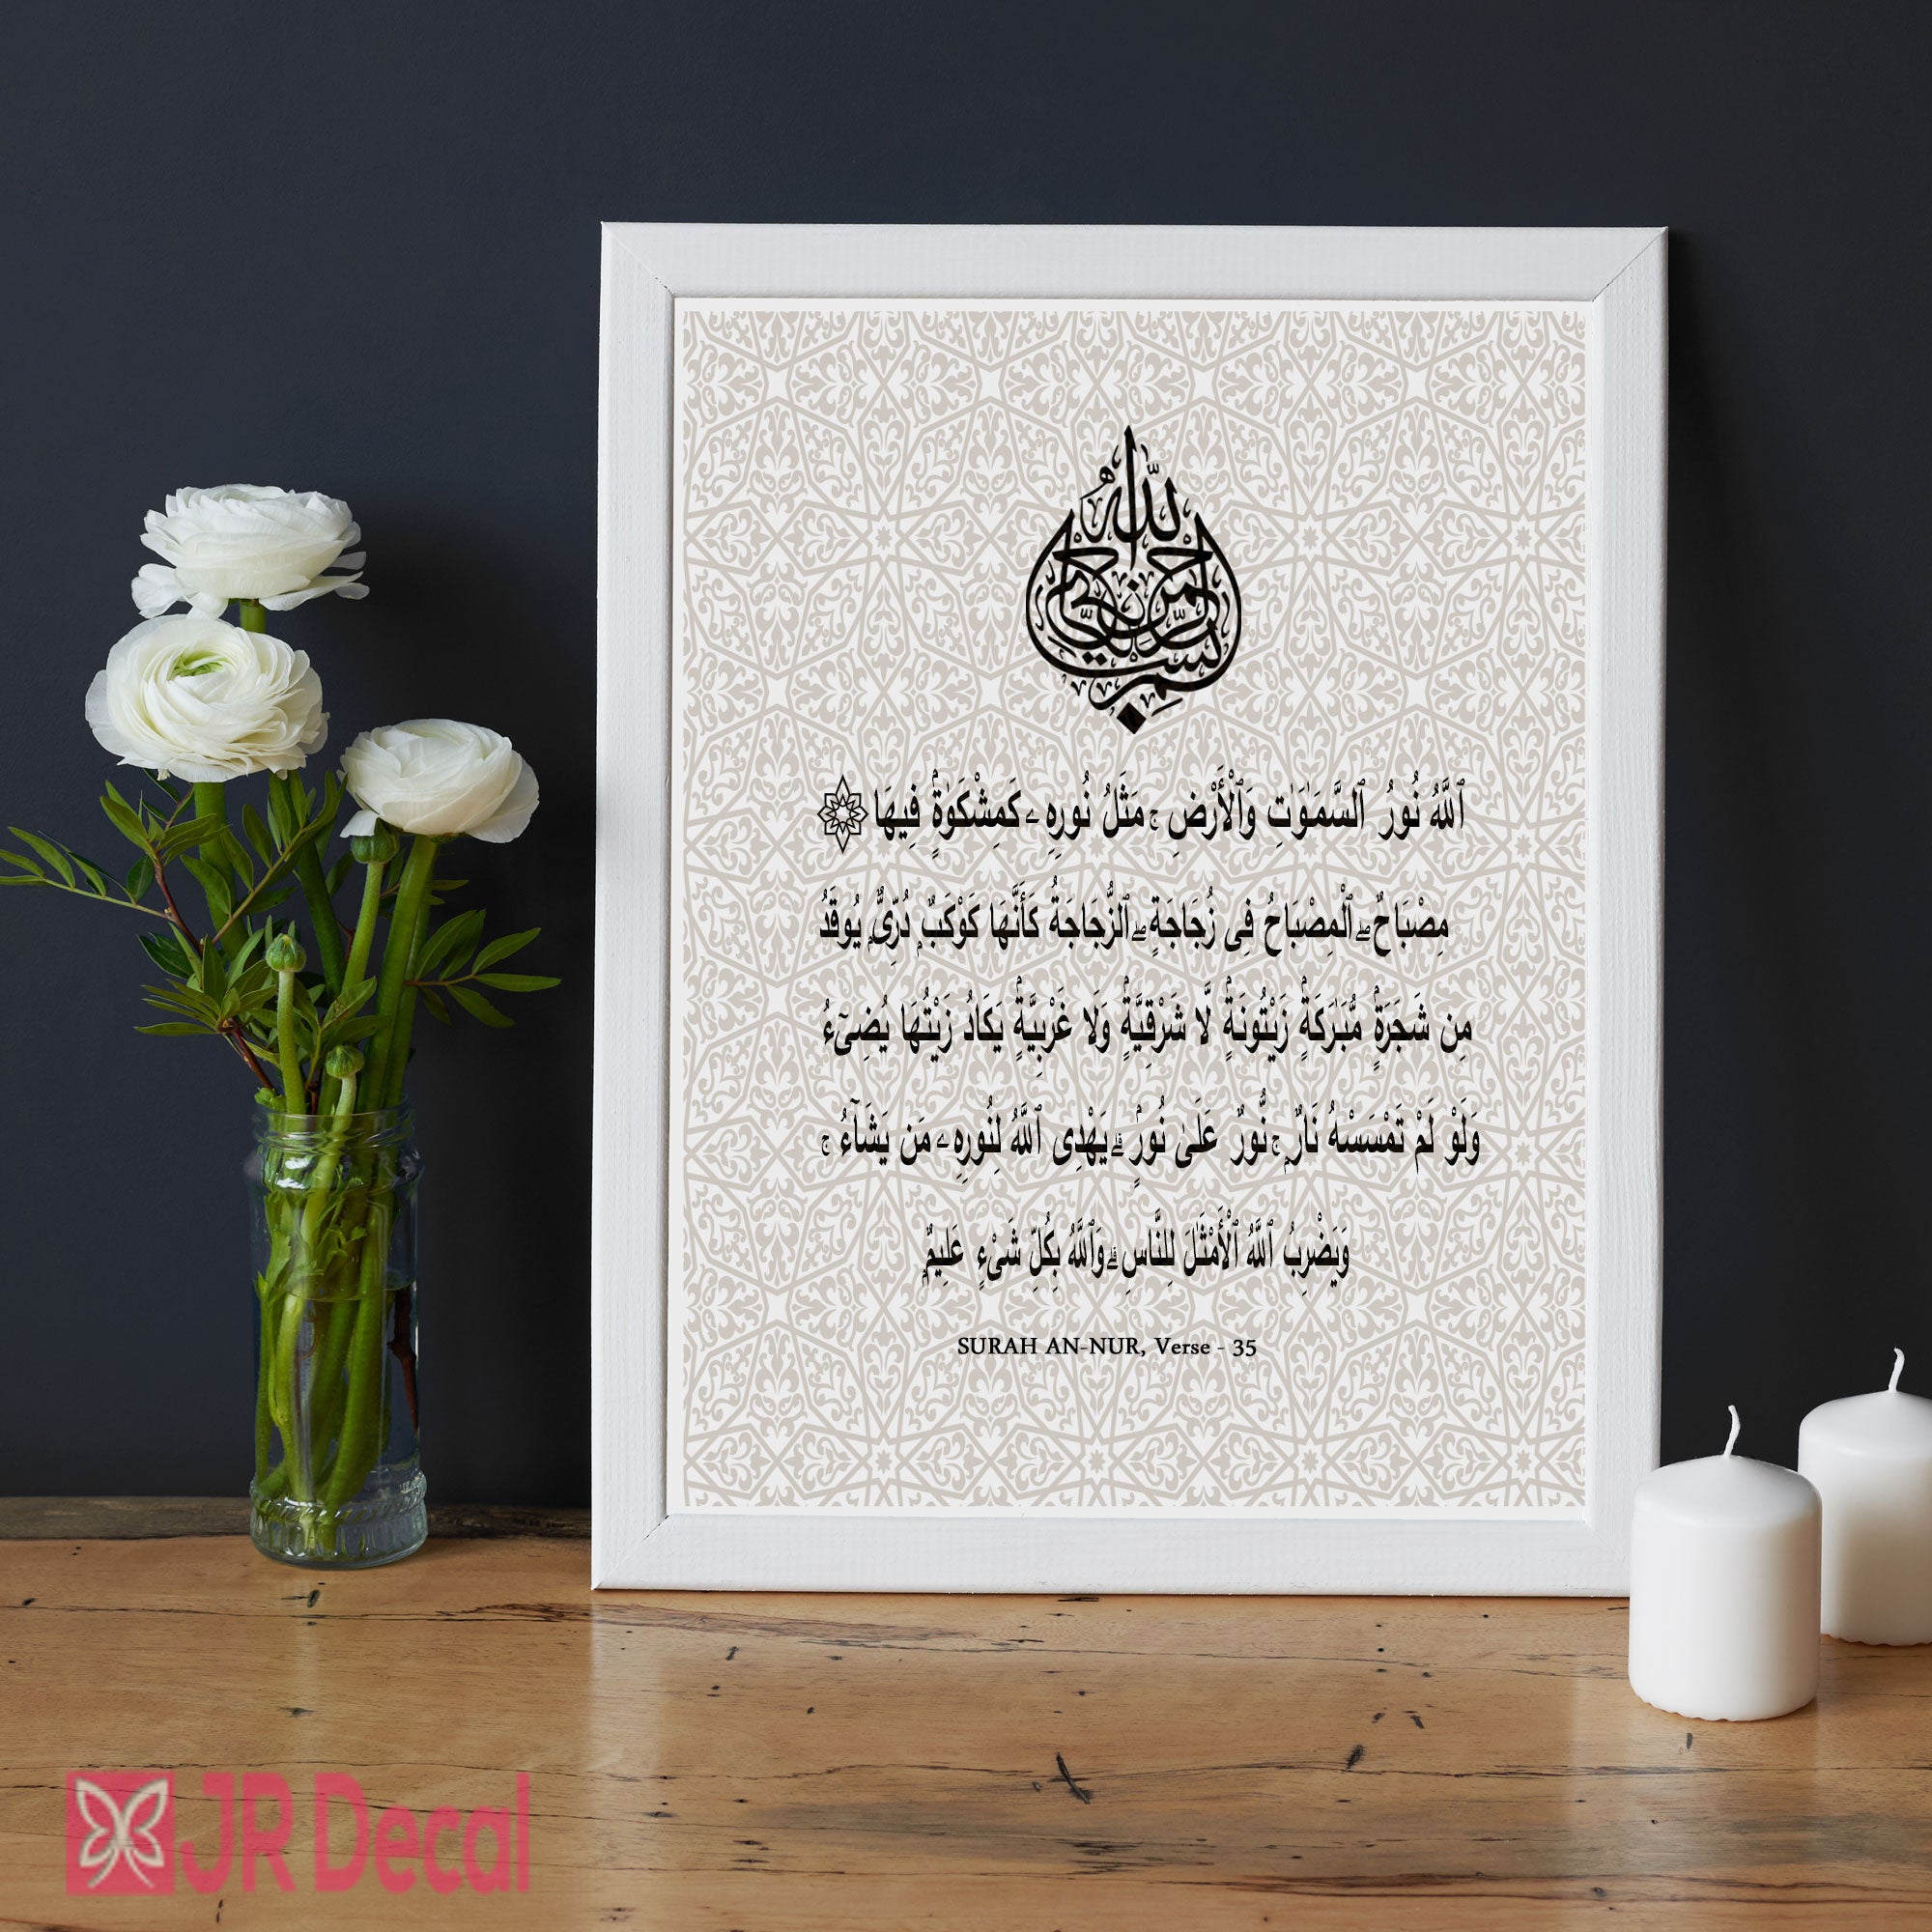 بسم الله الرحمن الرحيم
ٱللَّهُ نُورُ ٱلسَّمَـٰوَٰتِ وَٱلْأَرْضِ ۚ مَثَلُ نُورِهِۦ كَمِشْكَوٰةٍۢ فِيهَا ۞
مِصْبَاحٌ ۖ ٱلْمِصْبَاحُ فِى زُجَاجَةٍ ۖ ٱلزُّجَاجَةُ كَأَنَّهَا كَوْكَبٌۭ دُرِّىٌّۭ يُوقَدُ
مِن شَجَرَةٍۢ مُّبَـٰرَكَةٍۢ زَيْتُونَةٍۢ لَّا شَرْقِيَّةٍۢ وَلَا غَرْبِيَّةٍۢ يَكَادُ زَيْتُهَا يُضِىٓءُ
وَلَوْ لَمْ تَمْسَسْهُ نَارٌۭ ۚ نُّورٌ عَلَىٰ نُورٍۢ ۗ يَهْدِى ٱللَّهُ لِنُورِهِۦ مَن يَشَآءُ ۚ
وَيَضْرِبُ ٱللَّهُ ٱلْأَمْثَـٰلَ لِلنَّاسِ ۗ وَٱللَّهُ بِكُلِّ شَىْءٍ عَلِيمٌۭ
SURAH AN-NUR, Verse - 35
JR Decal